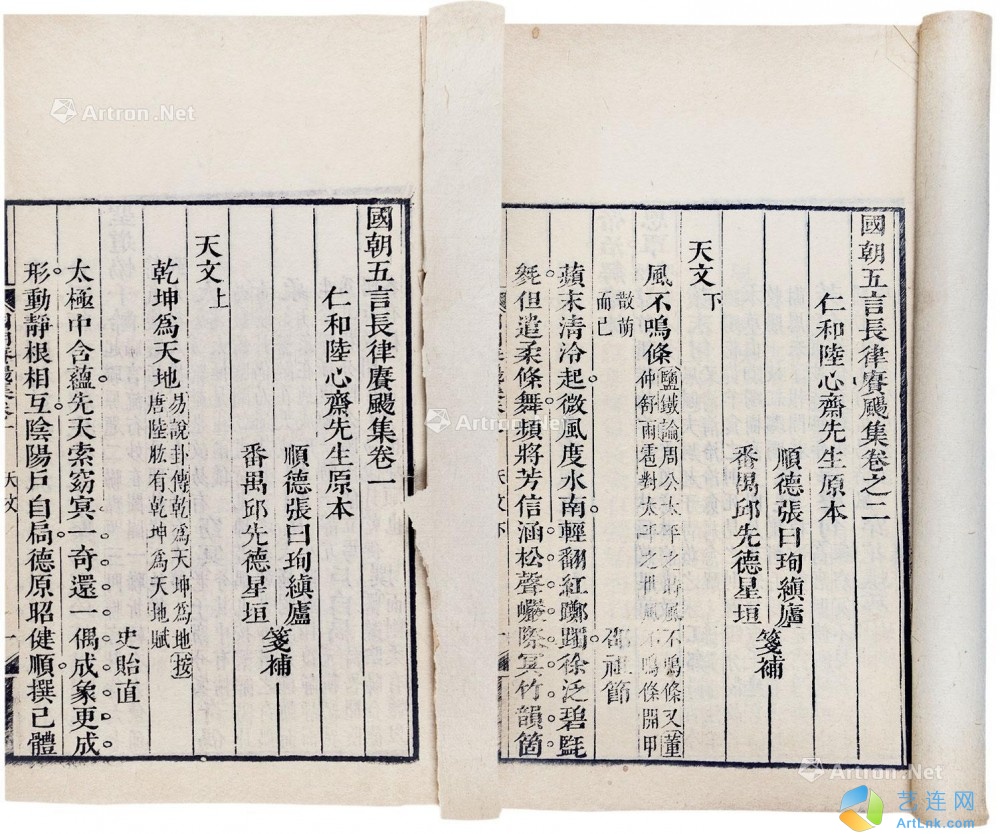 國朝五言長律賡颺集卷一
仁和陸心齋先生原本
順德張曰珣縝廬
番禺邱先德星垣
箋補
天文上
乾坤爲天地易說卦傳乾爲天坤爲地按
唐陸肱有乾坤爲天地賦
史貽直
太極中含蘊先天索窈冥一奇還一偶成象更成
形動靜根相互陰陽戶自局德原昭健順撰已體
天文
一
國朝五言長律賡颺集卷之二
仁和陸心齋先生原本
順德張曰珣縝廬
番禺邱先德星垣
箋補
天文下
風不鳴條鹽鐵論周公太平之時風不鳴條又董
仲舒雨雹對太平之世風不鳴條開甲
散萌
而已
邵祖節
蘋末清泠起微風度水南輕翻紅躑躅徐泛碧毿
毿但遣柔條舞頻將芳信涵松聲巖際竹韻箇
天文下
一
Artron.Net
Artron.Net
Artron.Net
Artron.Net
艺连网
ArtLnk.com